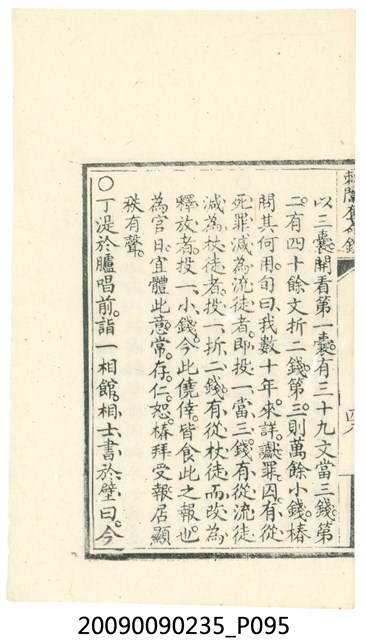 以三囊開看第一囊有三十九文當三錢第
二有四十餘文折二錢第三則萬餘小錢椿
問其何用旬曰我數十年來詳讞罪囚有從
死罪減為流徒者即投一當三錢有從流徒
減為杖徒者投一折二錢有從杖徒而改為
釋放者投一小錢今此僥倖皆食此之報也
為官日宜體此意常存仁恕椿拜受報居顯
秩有聲
○丁湜於臚唱前詣一相館相士書於壁曰今
20090090235_P095